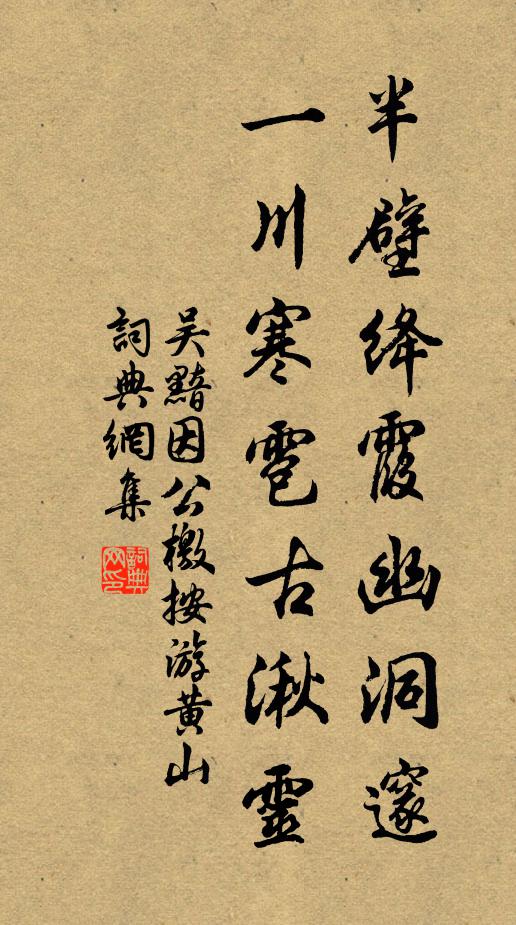 半壁绛霞幽洞邃
一川寒雹古湫靈
吴黯因公檄按游黄山
詞典網集
詞典网印